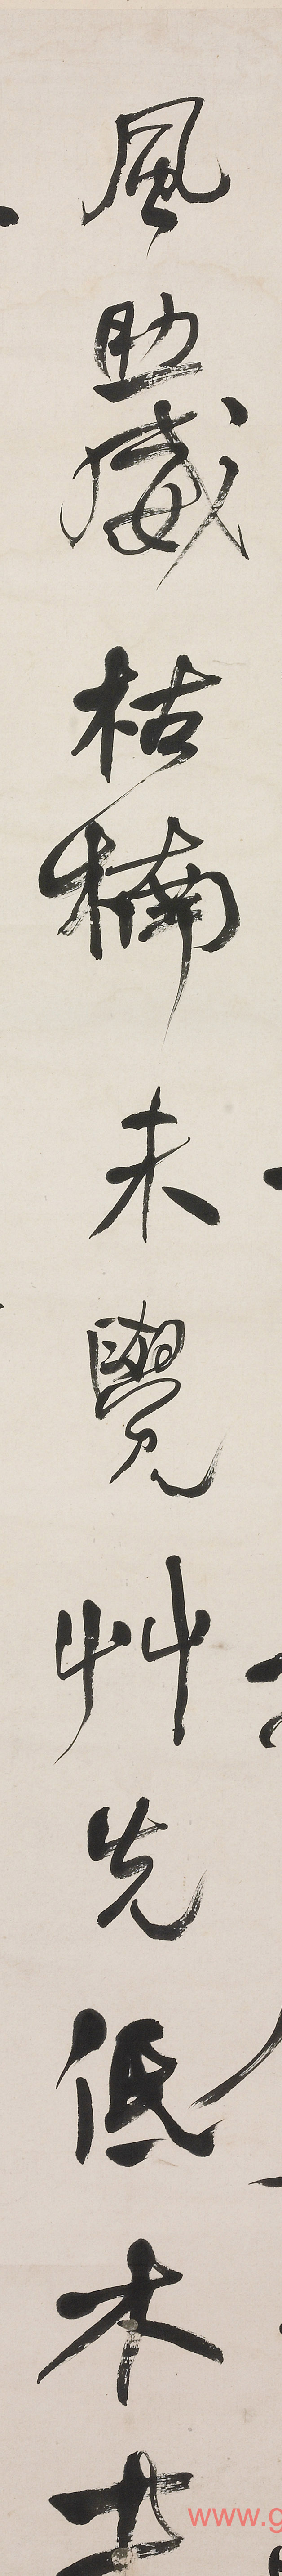 風助威枯楠未覺艸先低木
www.g